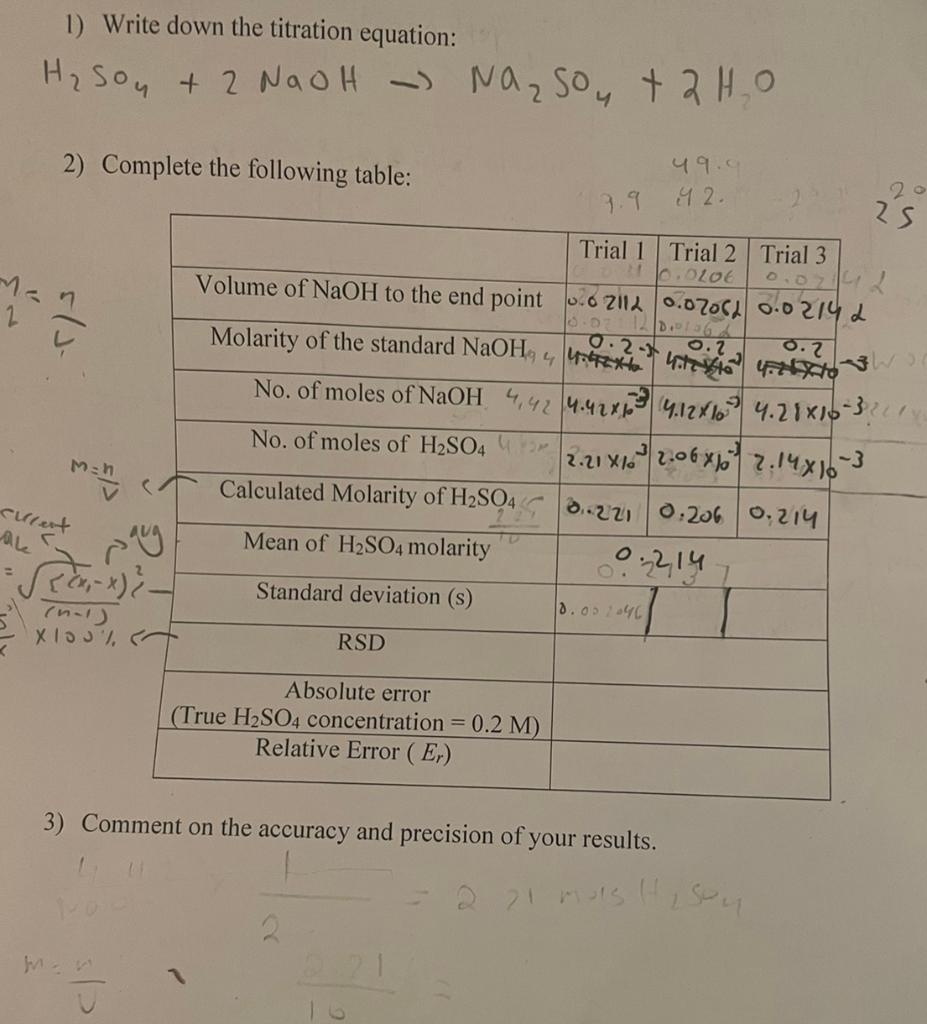 1) Write down the titration equation:
H₂SO₄ + 2 NaOH → Na₂SO₄ + 2H₂O
2) Complete the following table:
49.9
9.9 42.
20
25
Trial 1 Trial 2 Trial 3
Volume of NaOH to the end point 0.0211L 0.0206L 0.0214L
Molarity of the standard NaOH 0.2 0.2 0.2
No. of moles of NaOH 4,42 4.42x10⁻³ 4.12x10⁻³ 4.28x10⁻³
No. of moles of H₂SO₄ 2.21x10⁻³ 2.06x10⁻³ 2.14x10⁻³
M=n/V
Calculated Molarity of H₂SO₄ 0.221 0.206 0.214
current avg
Mean of H₂SO₄ molarity 0.214
√(Σ(xᵢ-x)²/(n-1))
Standard deviation (s)
x100%
RSD
Absolute error
(True H₂SO₄ concentration = 0.2 M)
Relative Error ( Eᵣ)
3) Comment on the accuracy and precision of your results.
2 = 2 21 mols H₂SO₄
m=n/V 2.21/10 =